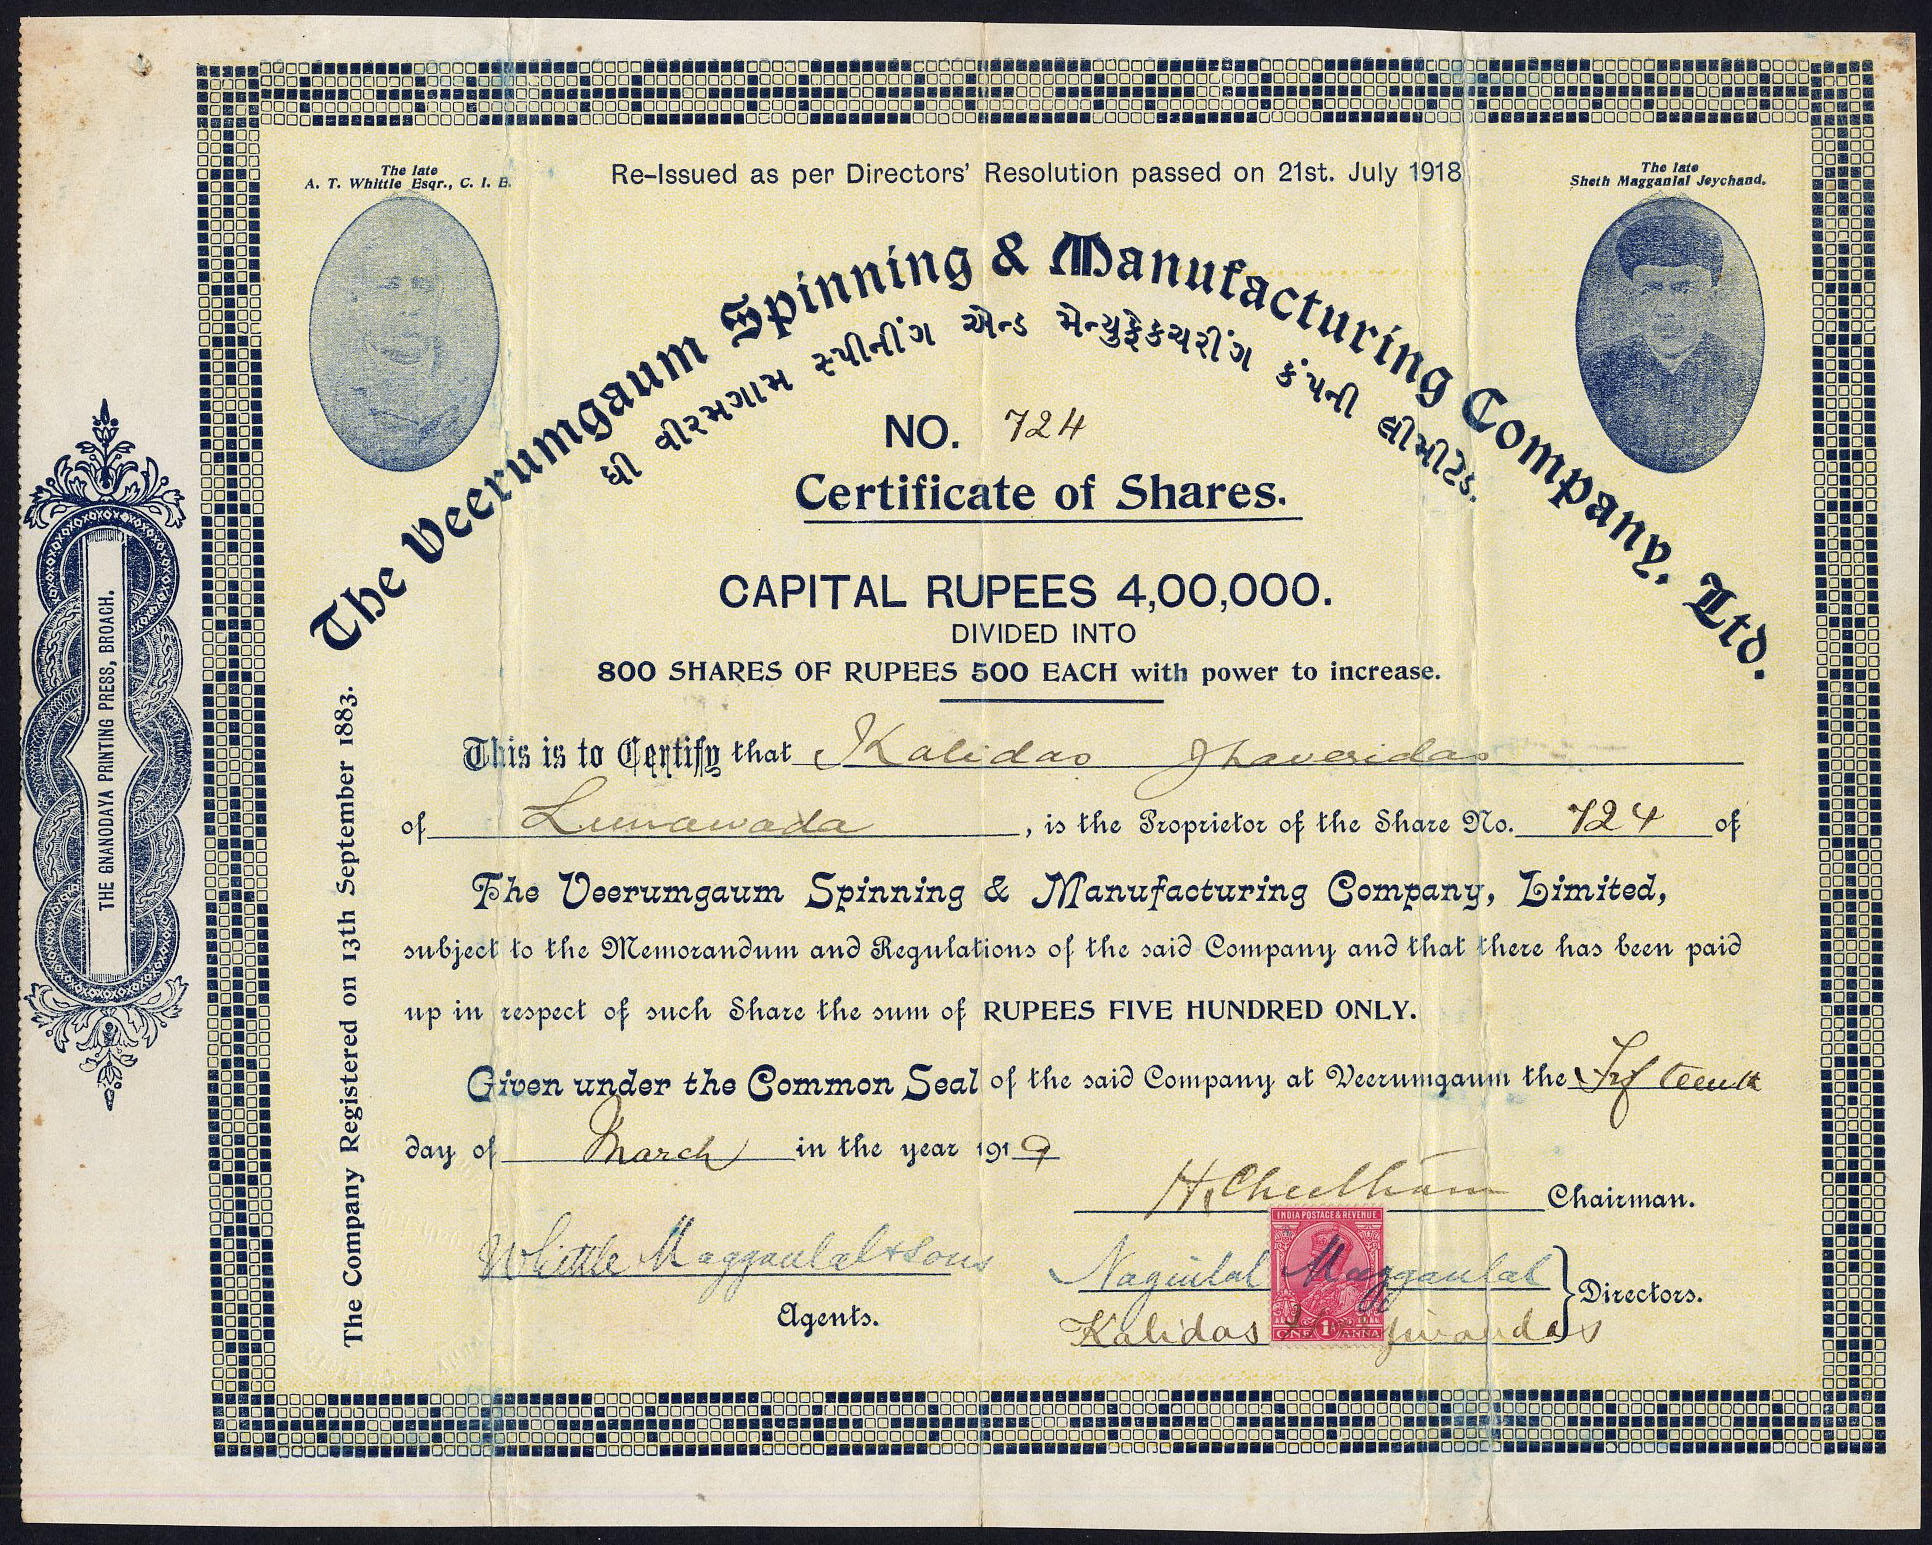 The late
A. T. Whittle Esqr., C. I. E.
Re-Issued as per Directors' Resolution passed on 21st. July 1918
The late
Sheth Magganlal Jeychand.
The Veerumgaum Spinning & Manufacturing Company, Ltd.
ધી વીરમગામ સ્પીનીંગ એન્ડ મેન્યુફેકચરીંગ કંપની લીમીટેડ.
NO. 724
Certificate of Shares.
CAPITAL RUPEES 4,00,000.
DIVIDED INTO
800 SHARES OF RUPEES 500 EACH with power to increase.
This is to Certify that Kalidas Jhaveridas
of Lunawada, is the Proprietor of the Share No. 724 of
The Veerumgaum Spinning & Manufacturing Company, Limited,
subject to the Memorandum and Regulations of the said Company and that there has been paid
up in respect of such Share the sum of RUPEES FIVE HUNDRED ONLY.
Given under the Common Seal of the said Company at Veerumgaum the Fifteenth
day of March in the year 1919
H. Cheetham Chairman.
Whittle Magganlal & Sons
Agents.
Naginlal Magganlal
Kalidas
Directors.
INDIA POSTAGE & REVENUE
ONE 1 ANNA
The Company Registered on 13th September 1883.
THE GNANODAYA PRINTING PRESS, BROACH.